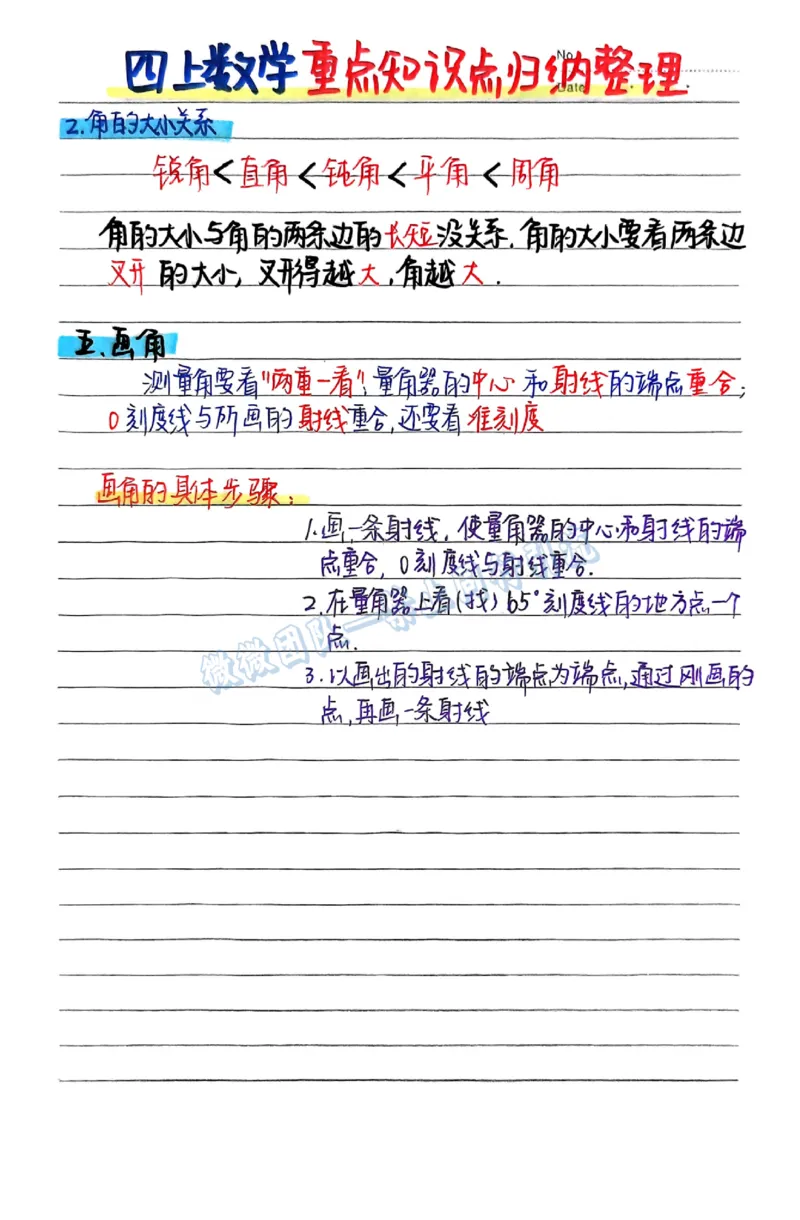 四上数学重点知识点归纳整理
No.
Date
2.角的大小关系
锐角<直角<钝角<平角<周角
角的大小与角的两条边的长短没关系.角的大小要看两条边
叉开的大小,叉开得越大,角越大.
五.画角
测量角要看"两重一看",量角器的中心和射线的端点重合;
0刻度线与所画的射线重合,还要看准刻度
画角的具体步骤:
1.画一条射线,使量角器的中心和射线的端
点重合,0刻度线与射线重合.
2.在量角器上看(找)65°刻度线的地方点一个
点.
3.以画出的射线的端点为端点,通过刚画的
点,再画一条射线
微微团队一